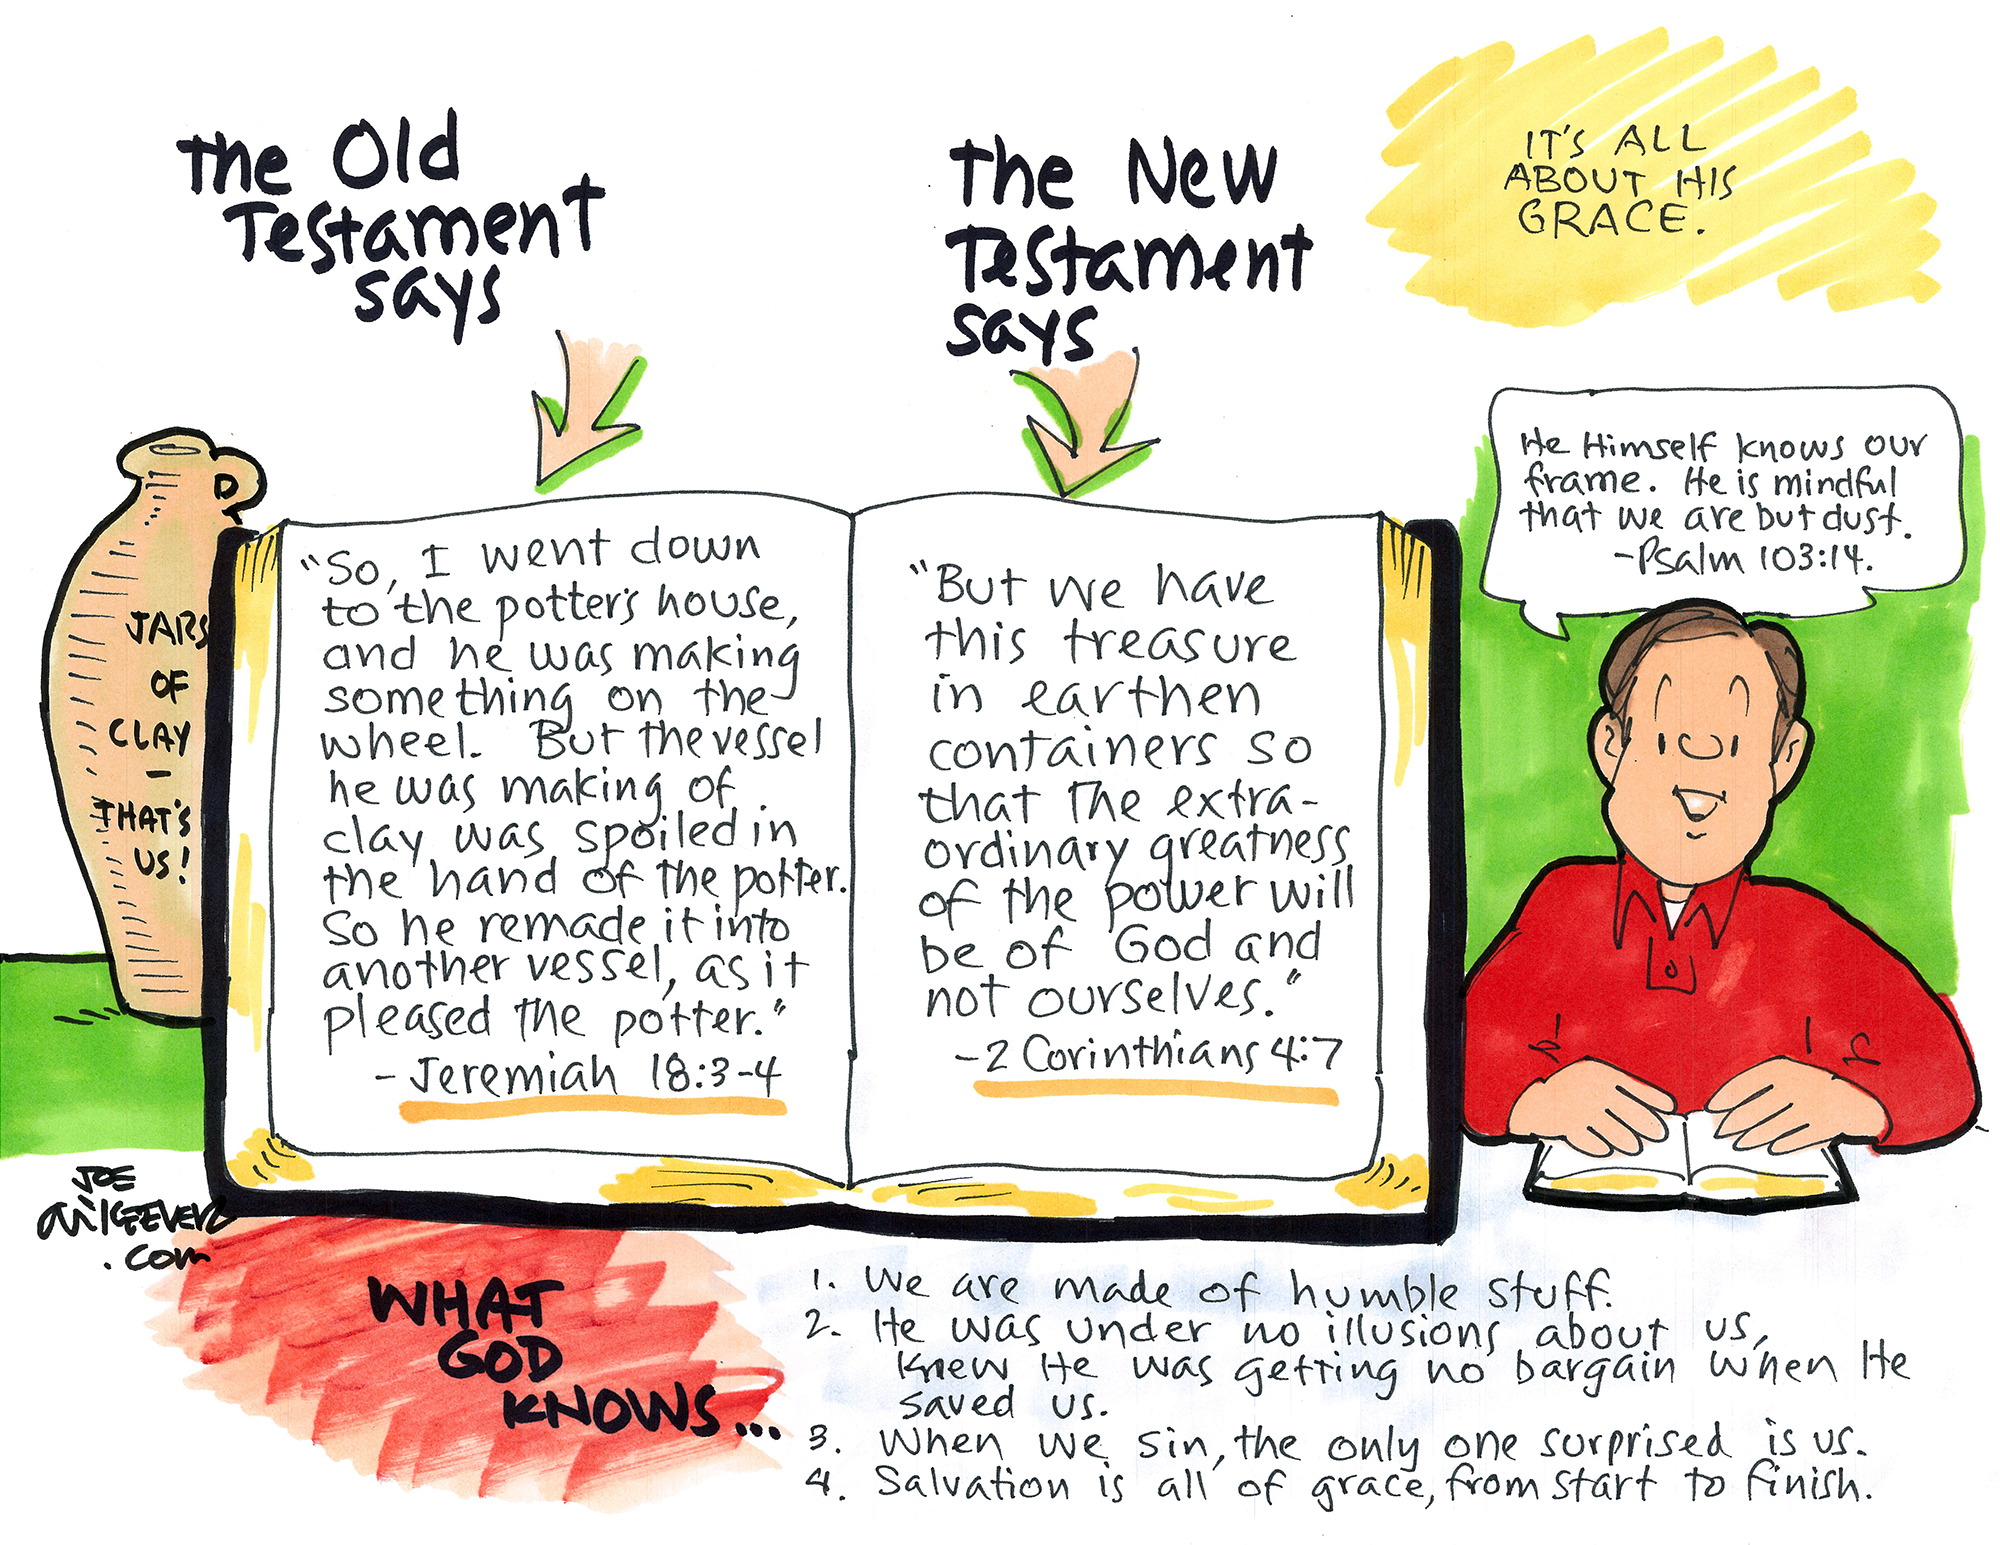 the Old
Testament
says
the New
Testament
says
IT'S ALL
ABOUT HIS
GRACE.
JARS
OF
CLAY
–
THAT'S
US!
"So, I went down
to the potter's house,
and he was making
something on the
wheel. But the vessel
he was making of
clay was spoiled in
the hand of the potter.
So he remade it into
another vessel, as it
pleased the potter."
- Jeremiah 18:3-4
"But we have
this treasure
in earthen
containers so
that the extra-
ordinary greatness
of the power will
be of God and
not ourselves."
- 2 Corinthians 4:7
He Himself knows our
frame. He is mindful
that we are but dust.
- Psalm 103:14.
JOE
McKEEVER
.com
WHAT
GOD
KNOWS...
1. We are made of humble stuff.
2. He was under no illusions about us,
knew He was getting no bargain when He
saved us.
3. When we sin, the only one surprised is us.
4. Salvation is all of grace, from start to finish.